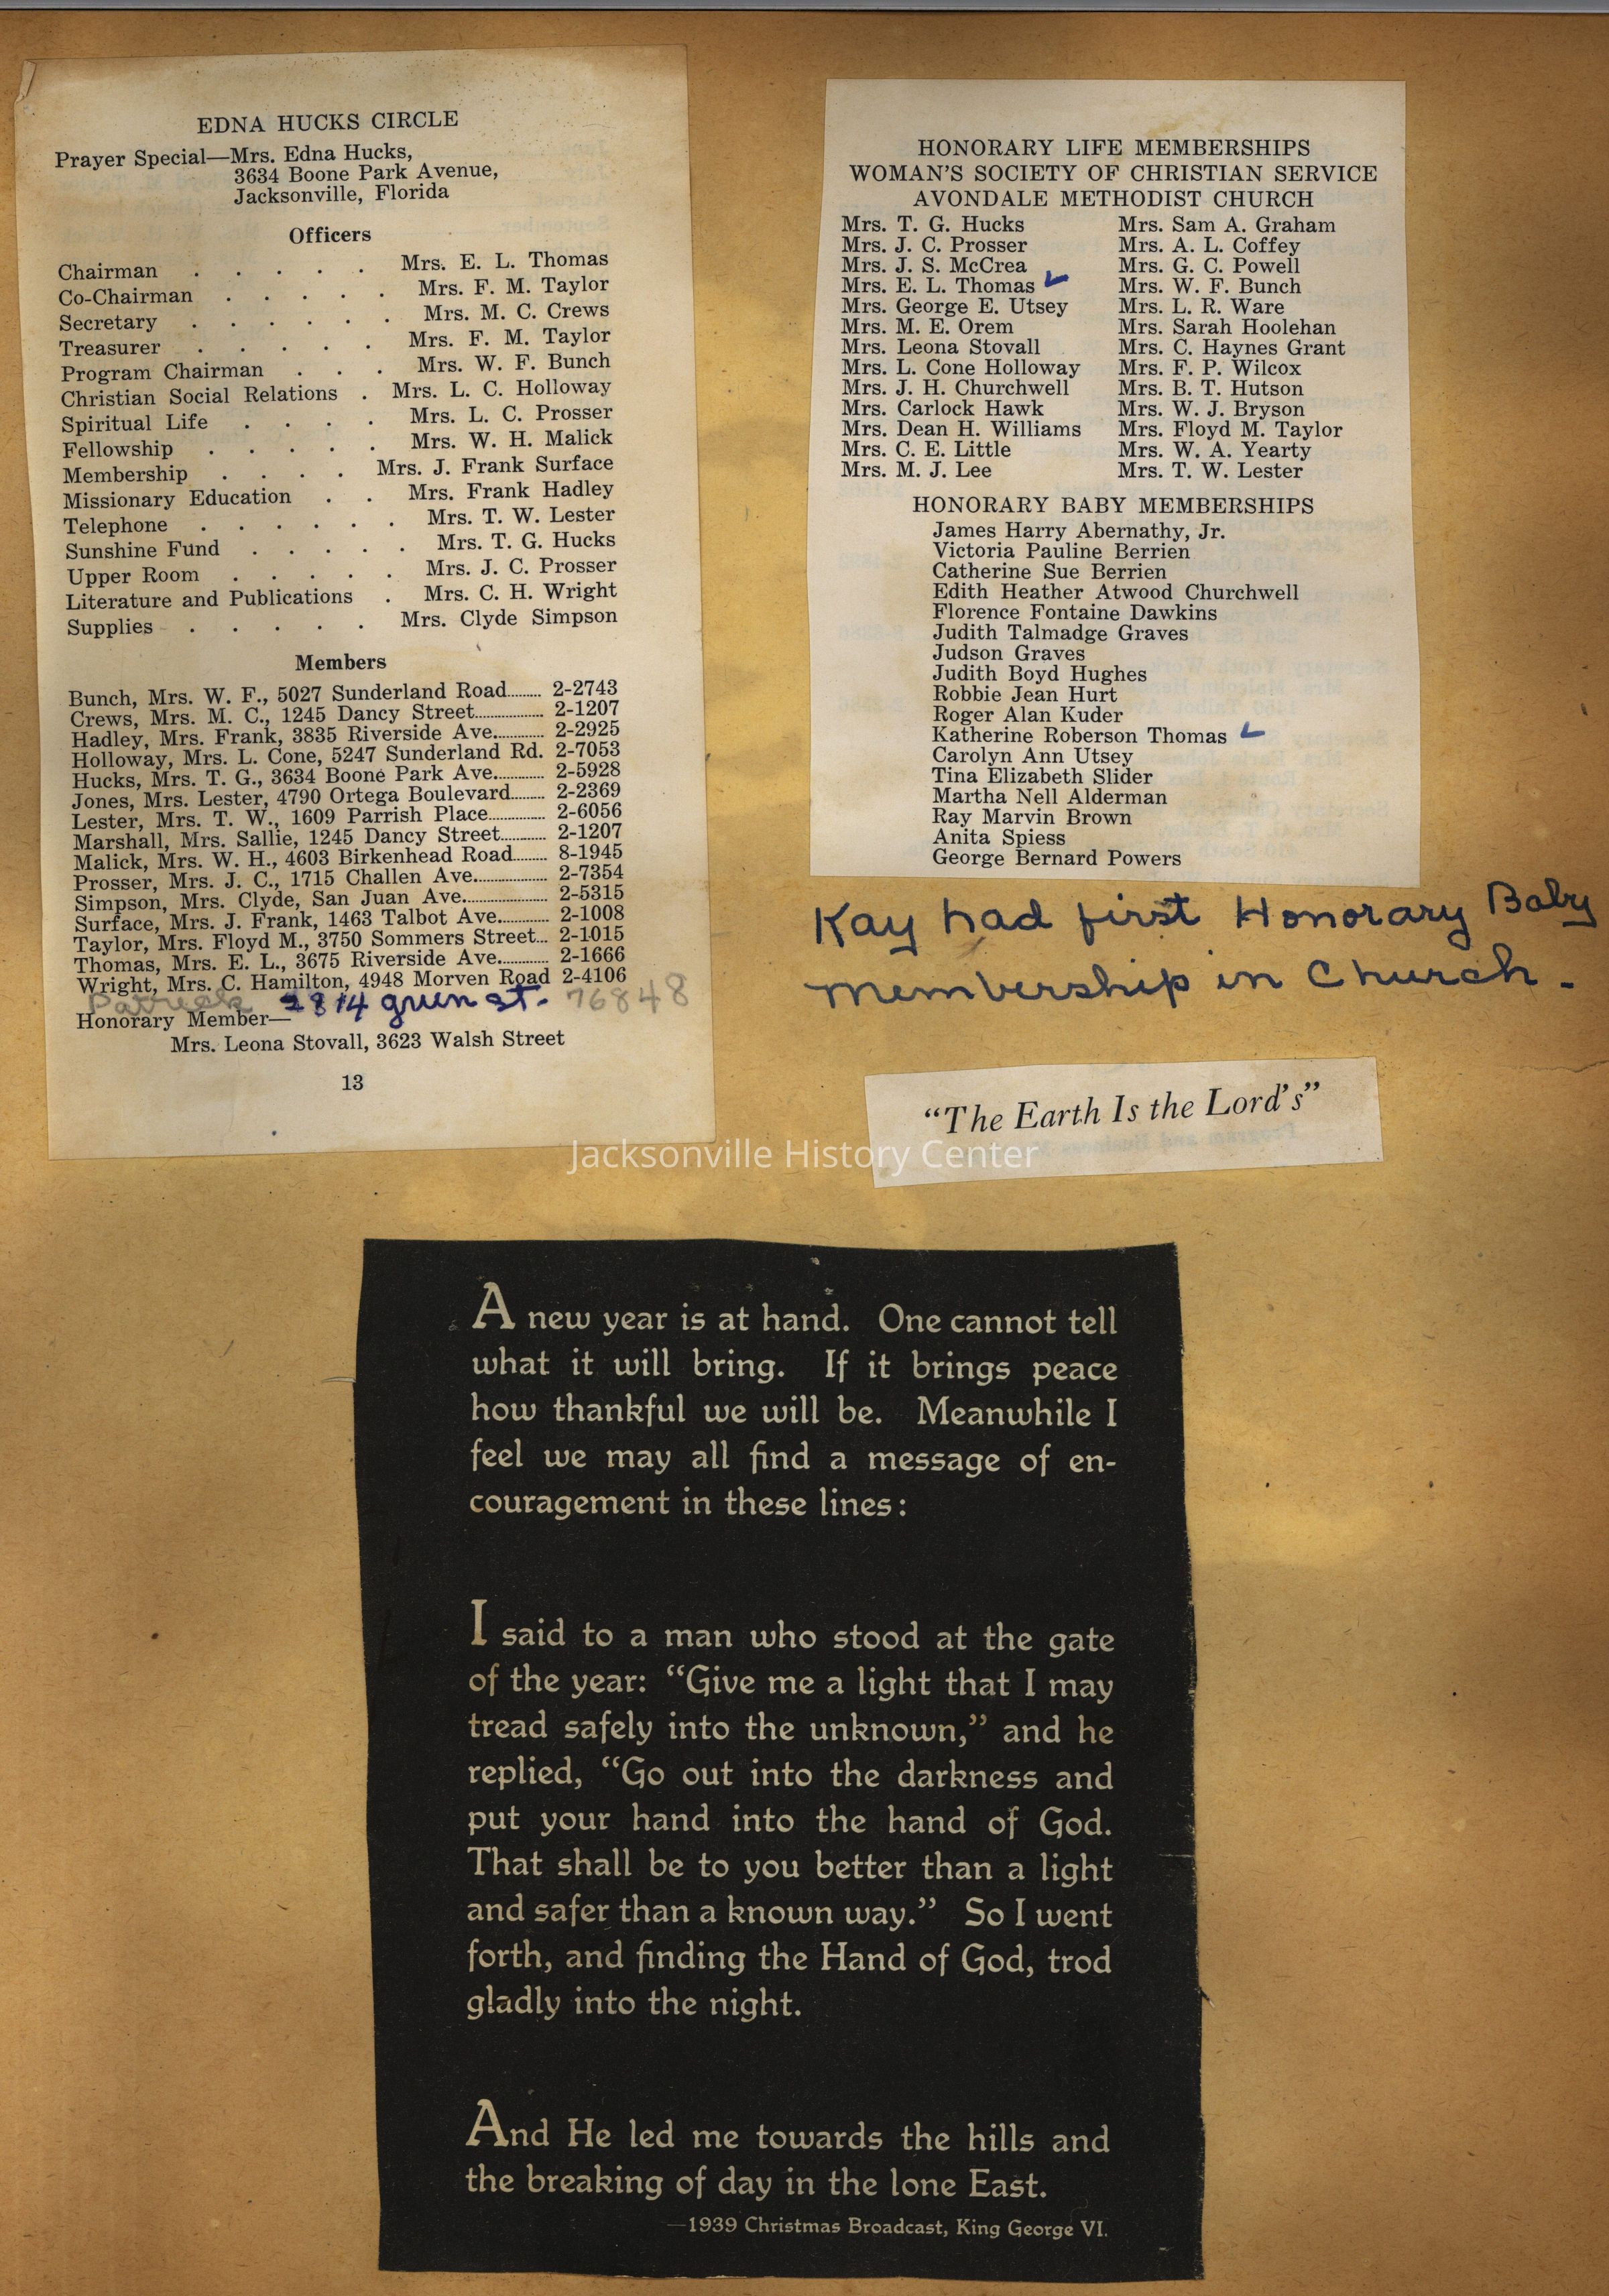 EDNA HUCKS CIRCLE
Prayer Special—Mrs. Edna Hucks,
3634 Boone Park Avenue,
Jacksonville, Florida
Officers
Chairman . . . . . Mrs. E. L. Thomas
Co-Chairman . . . . . Mrs. F. M. Taylor
Secretary . . . . . . Mrs. M. C. Crews
Treasurer . . . . . Mrs. F. M. Taylor
Program Chairman . . . Mrs. W. F. Bunch
Christian Social Relations . Mrs. L. C. Holloway
Spiritual Life . . . . Mrs. L. C. Prosser
Fellowship . . . . . Mrs. W. H. Malick
Membership . . . . Mrs. J. Frank Surface
Missionary Education . . Mrs. Frank Hadley
Telephone . . . . . . Mrs. T. W. Lester
Sunshine Fund . . . . . Mrs. T. G. Hucks
Upper Room . . . . . Mrs. J. C. Prosser
Literature and Publications . Mrs. C. H. Wright
Supplies . . . . . Mrs. Clyde Simpson
Members
Bunch, Mrs. W. F., 5027 Sunderland Road........ 2-2743
Crews, Mrs. M. C., 1245 Dancy Street................. 2-1207
Hadley, Mrs. Frank, 3835 Riverside Ave............ 2-2925
Holloway, Mrs. L. Cone, 5247 Sunderland Rd. 2-7053
Hucks, Mrs. T. G., 3634 Boone Park Ave............ 2-5928
Jones, Mrs. Lester, 4790 Ortega Boulevard........ 2-2369
Lester, Mrs. T. W., 1609 Parrish Place.............. 2-6056
Marshall, Mrs. Sallie, 1245 Dancy Street........... 2-1207
Malick, Mrs. W. H., 4603 Birkenhead Road........ 8-1945
Prosser, Mrs. J. C., 1715 Challen Ave.................. 2-7354
Simpson, Mrs. Clyde, San Juan Ave..................... 2-5315
Surface, Mrs. J. Frank, 1463 Talbot Ave............ 2-1008
Taylor, Mrs. Floyd M., 3750 Sommers Street... 2-1015
Thomas, Mrs. E. L., 3675 Riverside Ave............ 2-1666
Wright, Mrs. C. Hamilton, 4948 Morven Road 2-4106
2814 green st. 76848
Honorary Member—
Mrs. Leona Stovall, 3623 Walsh Street
13
HONORARY LIFE MEMBERSHIPS
WOMAN'S SOCIETY OF CHRISTIAN SERVICE
AVONDALE METHODIST CHURCH
Mrs. T. G. Hucks Mrs. Sam A. Graham
Mrs. J. C. Prosser Mrs. A. L. Coffey
Mrs. J. S. McCrea Mrs. G. C. Powell
Mrs. E. L. Thomas Mrs. W. F. Bunch
Mrs. George E. Utsey Mrs. L. R. Ware
Mrs. M. E. Orem Mrs. Sarah Hoolehan
Mrs. Leona Stovall Mrs. C. Haynes Grant
Mrs. L. Cone Holloway Mrs. F. P. Wilcox
Mrs. J. H. Churchwell Mrs. B. T. Hutson
Mrs. Carlock Hawk Mrs. W. J. Bryson
Mrs. Dean H. Williams Mrs. Floyd M. Taylor
Mrs. C. E. Little Mrs. W. A. Yearty
Mrs. M. J. Lee Mrs. T. W. Lester
HONORARY BABY MEMBERSHIPS
James Harry Abernathy, Jr.
Victoria Pauline Berrien
Catherine Sue Berrien
Edith Heather Atwood Churchwell
Florence Fontaine Dawkins
Judith Talmadge Graves
Judson Graves
Judith Boyd Hughes
Robbie Jean Hurt
Roger Alan Kuder
Katherine Roberson Thomas
Carolyn Ann Utsey
Tina Elizabeth Slider
Martha Nell Alderman
Ray Marvin Brown
Anita Spiess
George Bernard Powers
Kay had first Honorary Baby
Membership in Church.
"The Earth Is the Lord's"
Jacksonville History Center
A new year is at hand. One cannot tell
what it will bring. If it brings peace
how thankful we will be. Meanwhile I
feel we may all find a message of en-
couragement in these lines:
I said to a man who stood at the gate
of the year: "Give me a light that I may
tread safely into the unknown," and he
replied, "Go out into the darkness and
put your hand into the hand of God.
That shall be to you better than a light
and safer than a known way." So I went
forth, and finding the Hand of God, trod
gladly into the night.
And He led me towards the hills and
the breaking of day in the lone East.
—1939 Christmas Broadcast, King George VI.